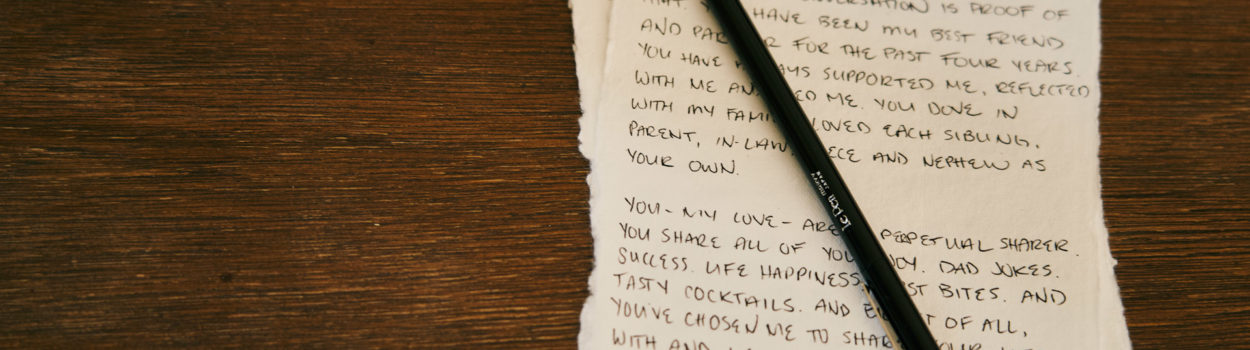 IS PROOF OF
HAVE BEEN MY BEST FRIEND
AND FOR THE PAST FOUR YEARS.
YOU HAVE SUPPORTED ME, REFLECTED
WITH ME ME. YOU DOVE IN
WITH MY LOVED EACH SIBLING,
PARENT, IN-LAW, AND NEPHEW AS
YOUR OWN.
YOU - MY LOVE - ARE PERPETUAL SHARER.
YOU SHARE ALL OF JOY. DAD JOKES.
SUCCESS. LIFE HAPPINESS. BITES. AND
TASTY COCKTAILS. AND OF ALL,
YOU'VE CHOSEN ME TO
WITH AND
Le Pen
MARVY
JAPAN